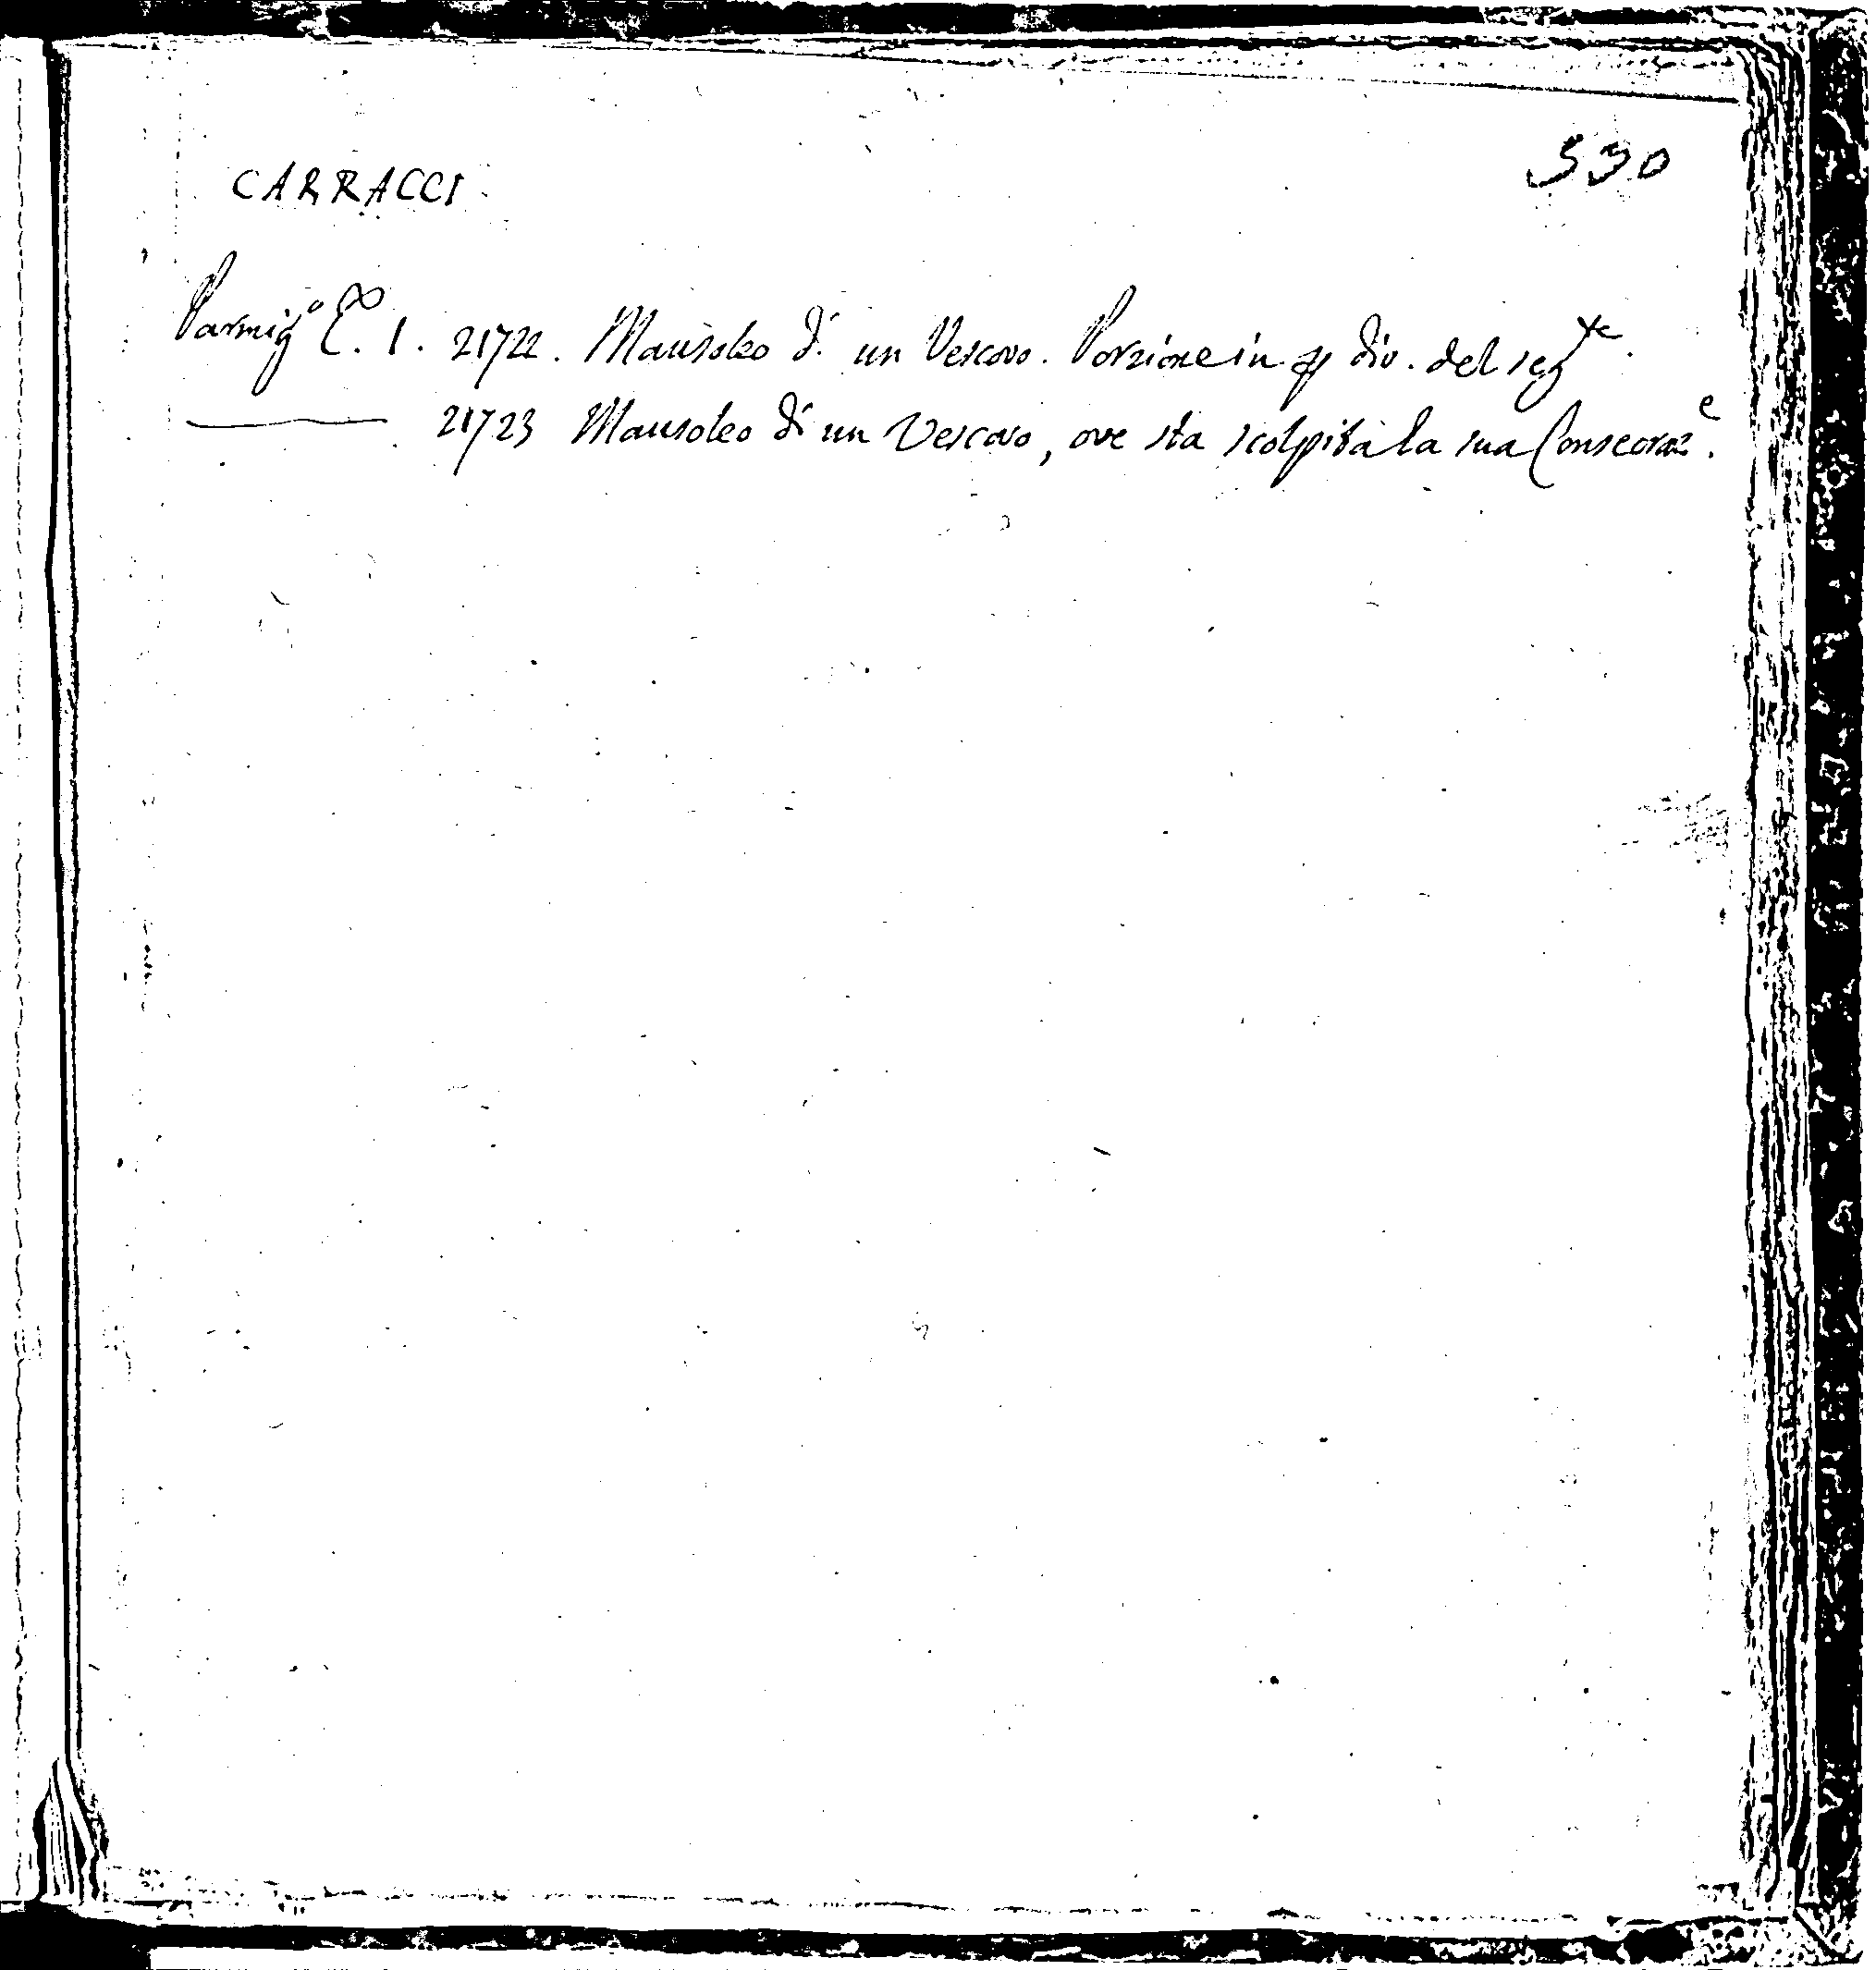 CARRACCI
530
Parmig.º 1. 21722. Mausoleo di un Vescovo. Porzione in div. del segte.
21723 Mausoleo di un Vescovo, ove sta scolpita la sua Consecraze.